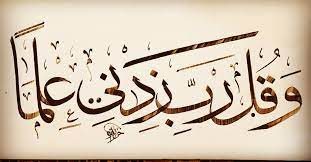 وَقُل رَبِّ زِدْنِي عِلْمًا